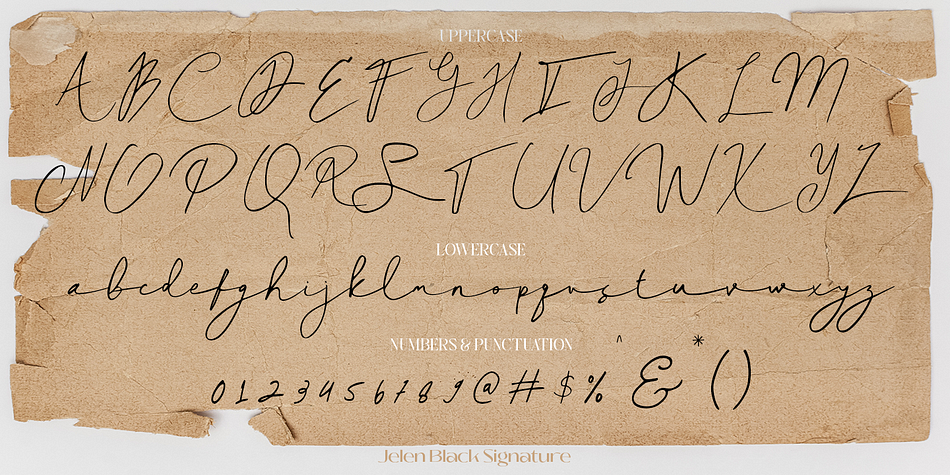 UPPERCASE
A B C D E F G H I J K L M
N O P Q R S T U V W X Y Z
LOWERCASE
abcdefghijklmnopqrstuvwxyz
NUMBERS & PUNCTUATION
0 1 2 3 4 5 6 7 8 9 @ # $ % ^ & * ( )
Jelen Black Signature